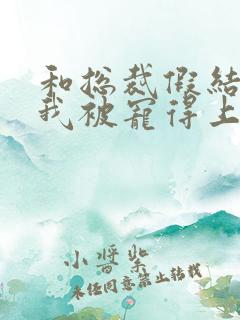 和总裁假结
我被宠得上
小酱紫
未经同意禁止转载